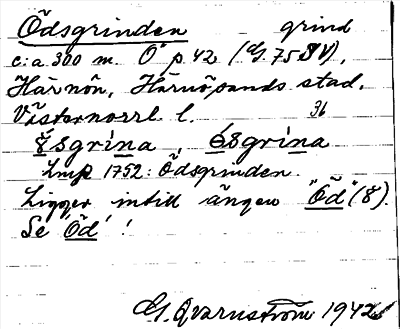 Ödsgrinden grind
c:a 300 m. O p. 42 (G. 75 SV),
Härnön, Härnösands stad,
Västernorrl. l. 36
8sgrina, 68grina
Lmp 1752: Ödsgrinden.
Ligger intill ängen "Öd" (8).
Se Öd!
G. Qvarnström 1942